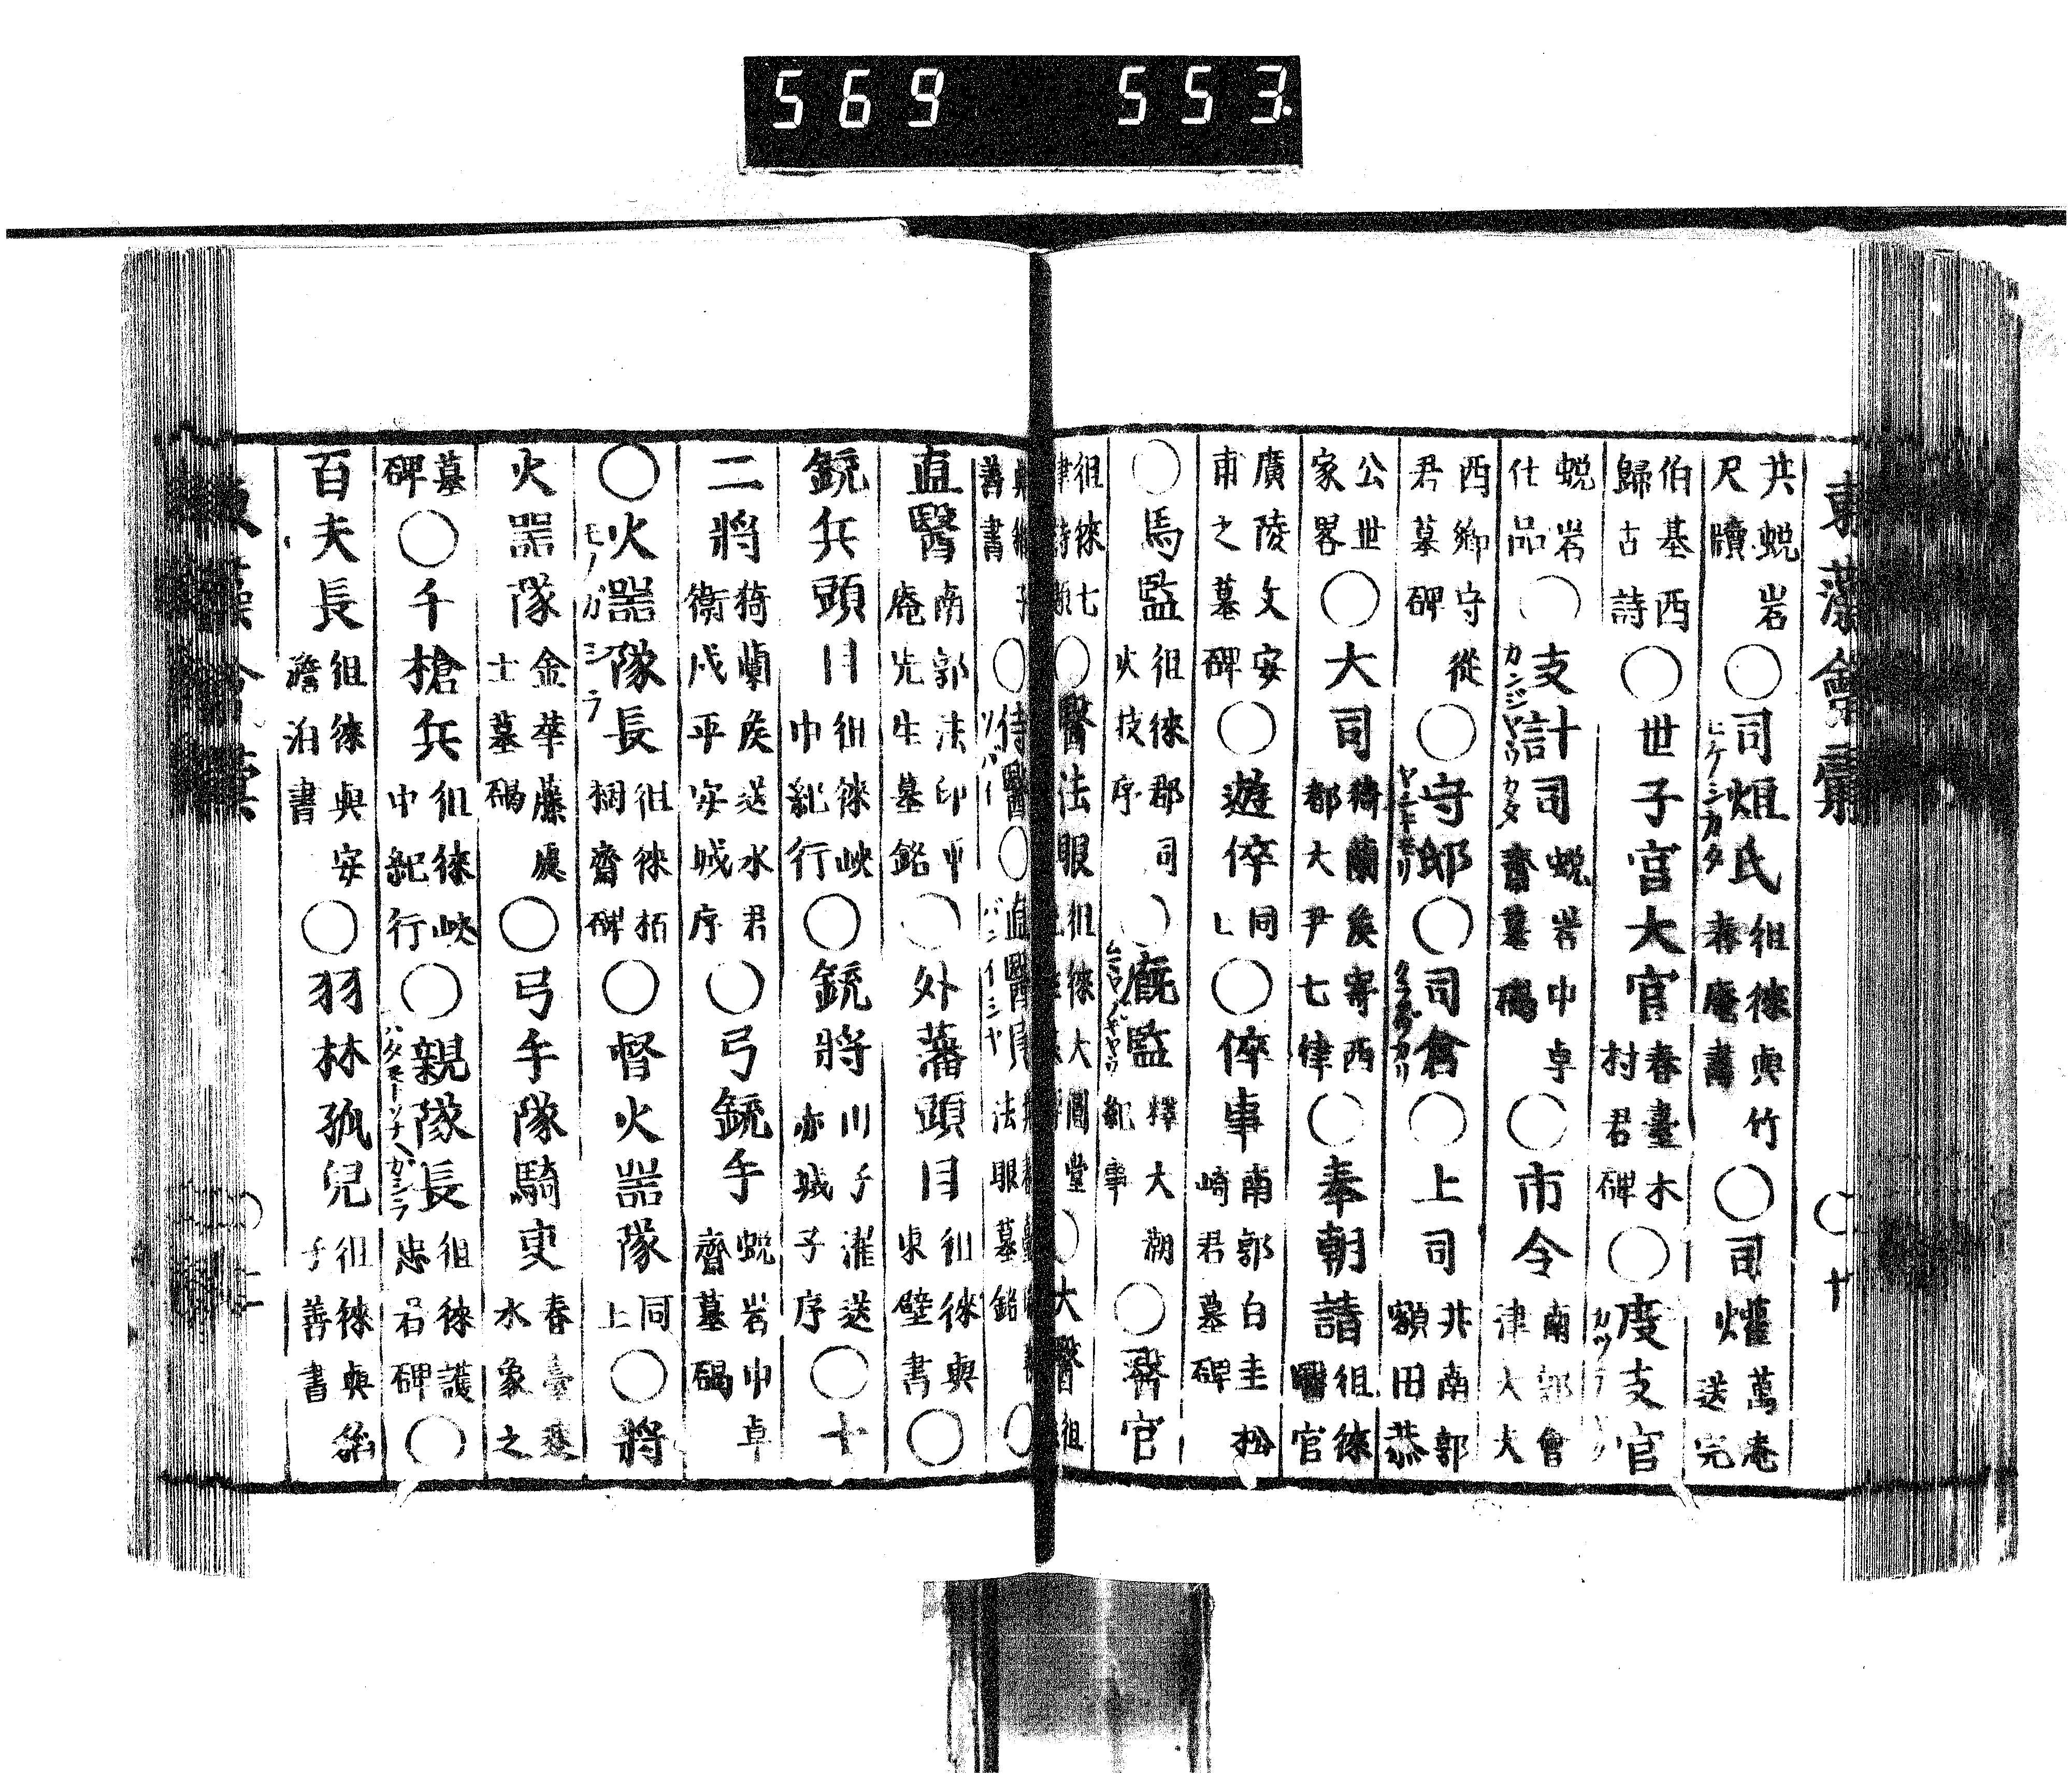 569 553.
共蛻岩尺牘○司爼氏徂徠與竹春庵書○司爟萬庵送完
ヒケシカタ
伯基西歸古詩○世子宮大官春臺木村君碑○度支官
蛻岩仕品○支計司蛻岩中卓齋墓碣○市令南郭會津大大
カンジヤウカタ
西鄉守從君墓碑○守邸○司倉○上司共南郭額田恭
公世家畧○大司猗蘭矦寄西都大尹七律○奉朝請徂徠醫官
廣陵文安甫之墓碑○遊倅同上○倅事南郭白圭松崎君墓碑
○馬監徂徠郡司火技序○廐監釋大潮紀事○醫官
徂徠七律詩題○醫法眼徂徠大圓堂○大醫徂
善書○侍醫○直醫 法眼墓銘○
直醫南郭法印平庵先生墓銘○外藩頭目徂徠與東壁書○
銃兵頭目徂徠峽中紀行○銃將川子濯送亦城子序○十
二將猗蘭矦送水君衞戍平安城序○弓銃手蛻岩中卓齋墓碣
○火噐隊長徂徠栢㭿齋碑○督火噐隊同上○將
モノガシラ
火噐隊金華藤處士墓碣○弓手隊騎吏春臺送水象之
墓碑○千槍兵徂徠峽中紀行○親隊長徂徠護忠君碑○
百夫長徂徠與安澹泊書○羽林孤兒徂徠與縣子善書